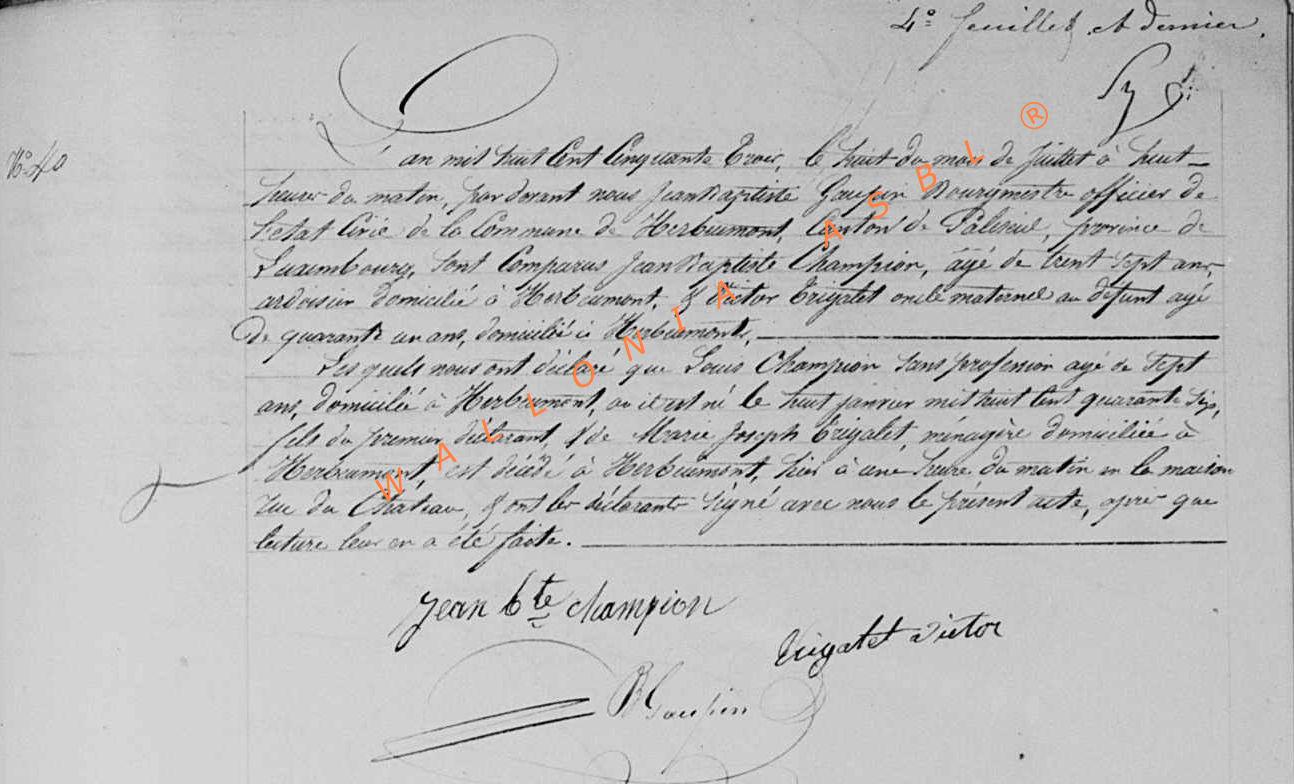 4.° feuillet et dernier.
N.° 40
L'an mil huit Cent Cinquante Trois, le huit du mois de Juillet à huit
heures du matin, par devant nous Jean Baptiste Gaupin Bourgmestre officier de
l'état Civil de la Commune de Herbeumont, Canton de Paliseul, province de
Luxembourg, sont Comparus Jean Baptiste Champion, âgé de trent sept ans,
ardoisier domicilié à Herbeumont, & Victor Trigalet oncle maternel au défunt agé
De quarante un ans, domicilié à Herbeumont,
Les quels nous ont déclaré que Louis Champion sans profession agé de sept
ans, domicilié à Herbeumont, ou il est né le huit janvier mil huit Cent quarante six,
fils du premier déclarant, & de Marie Joseph Trigalet, ménagère domiciliée à
Herbeumont, est décédé à Herbeumont, hier à une heure du matin en la maison
rue du Château, & ont les déclarants signé avec nous le présent acte, après que
lecture leur en a été faite.
Jean bte champion
Trigalet victor
B Gaupin
WALLONIA ASBL ®